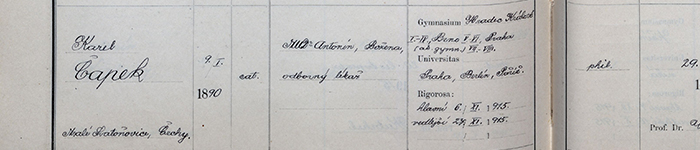 Karel
Čapek
Malé Svatoňovice, Čechy.
9. I.
1890
cat.
MUDr Antonín, Božena,
odborný lékař
Gymnasium Hradec Králové
I-IV, Brno V-VI, Praha
(ak. gymn.) VII.-VIII.
Universitas
Praha, Berlín, Paříž.
Rigorosa:
hlavní 6. XI. 1915.
vedlejší 27. XI. 1915.
phil.
29.
1
Prof. Dr.